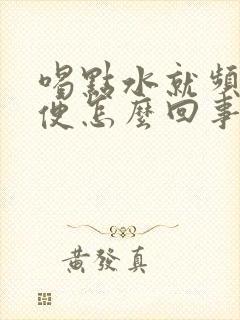 喝點水就頻
便怎麼回事
黃發真